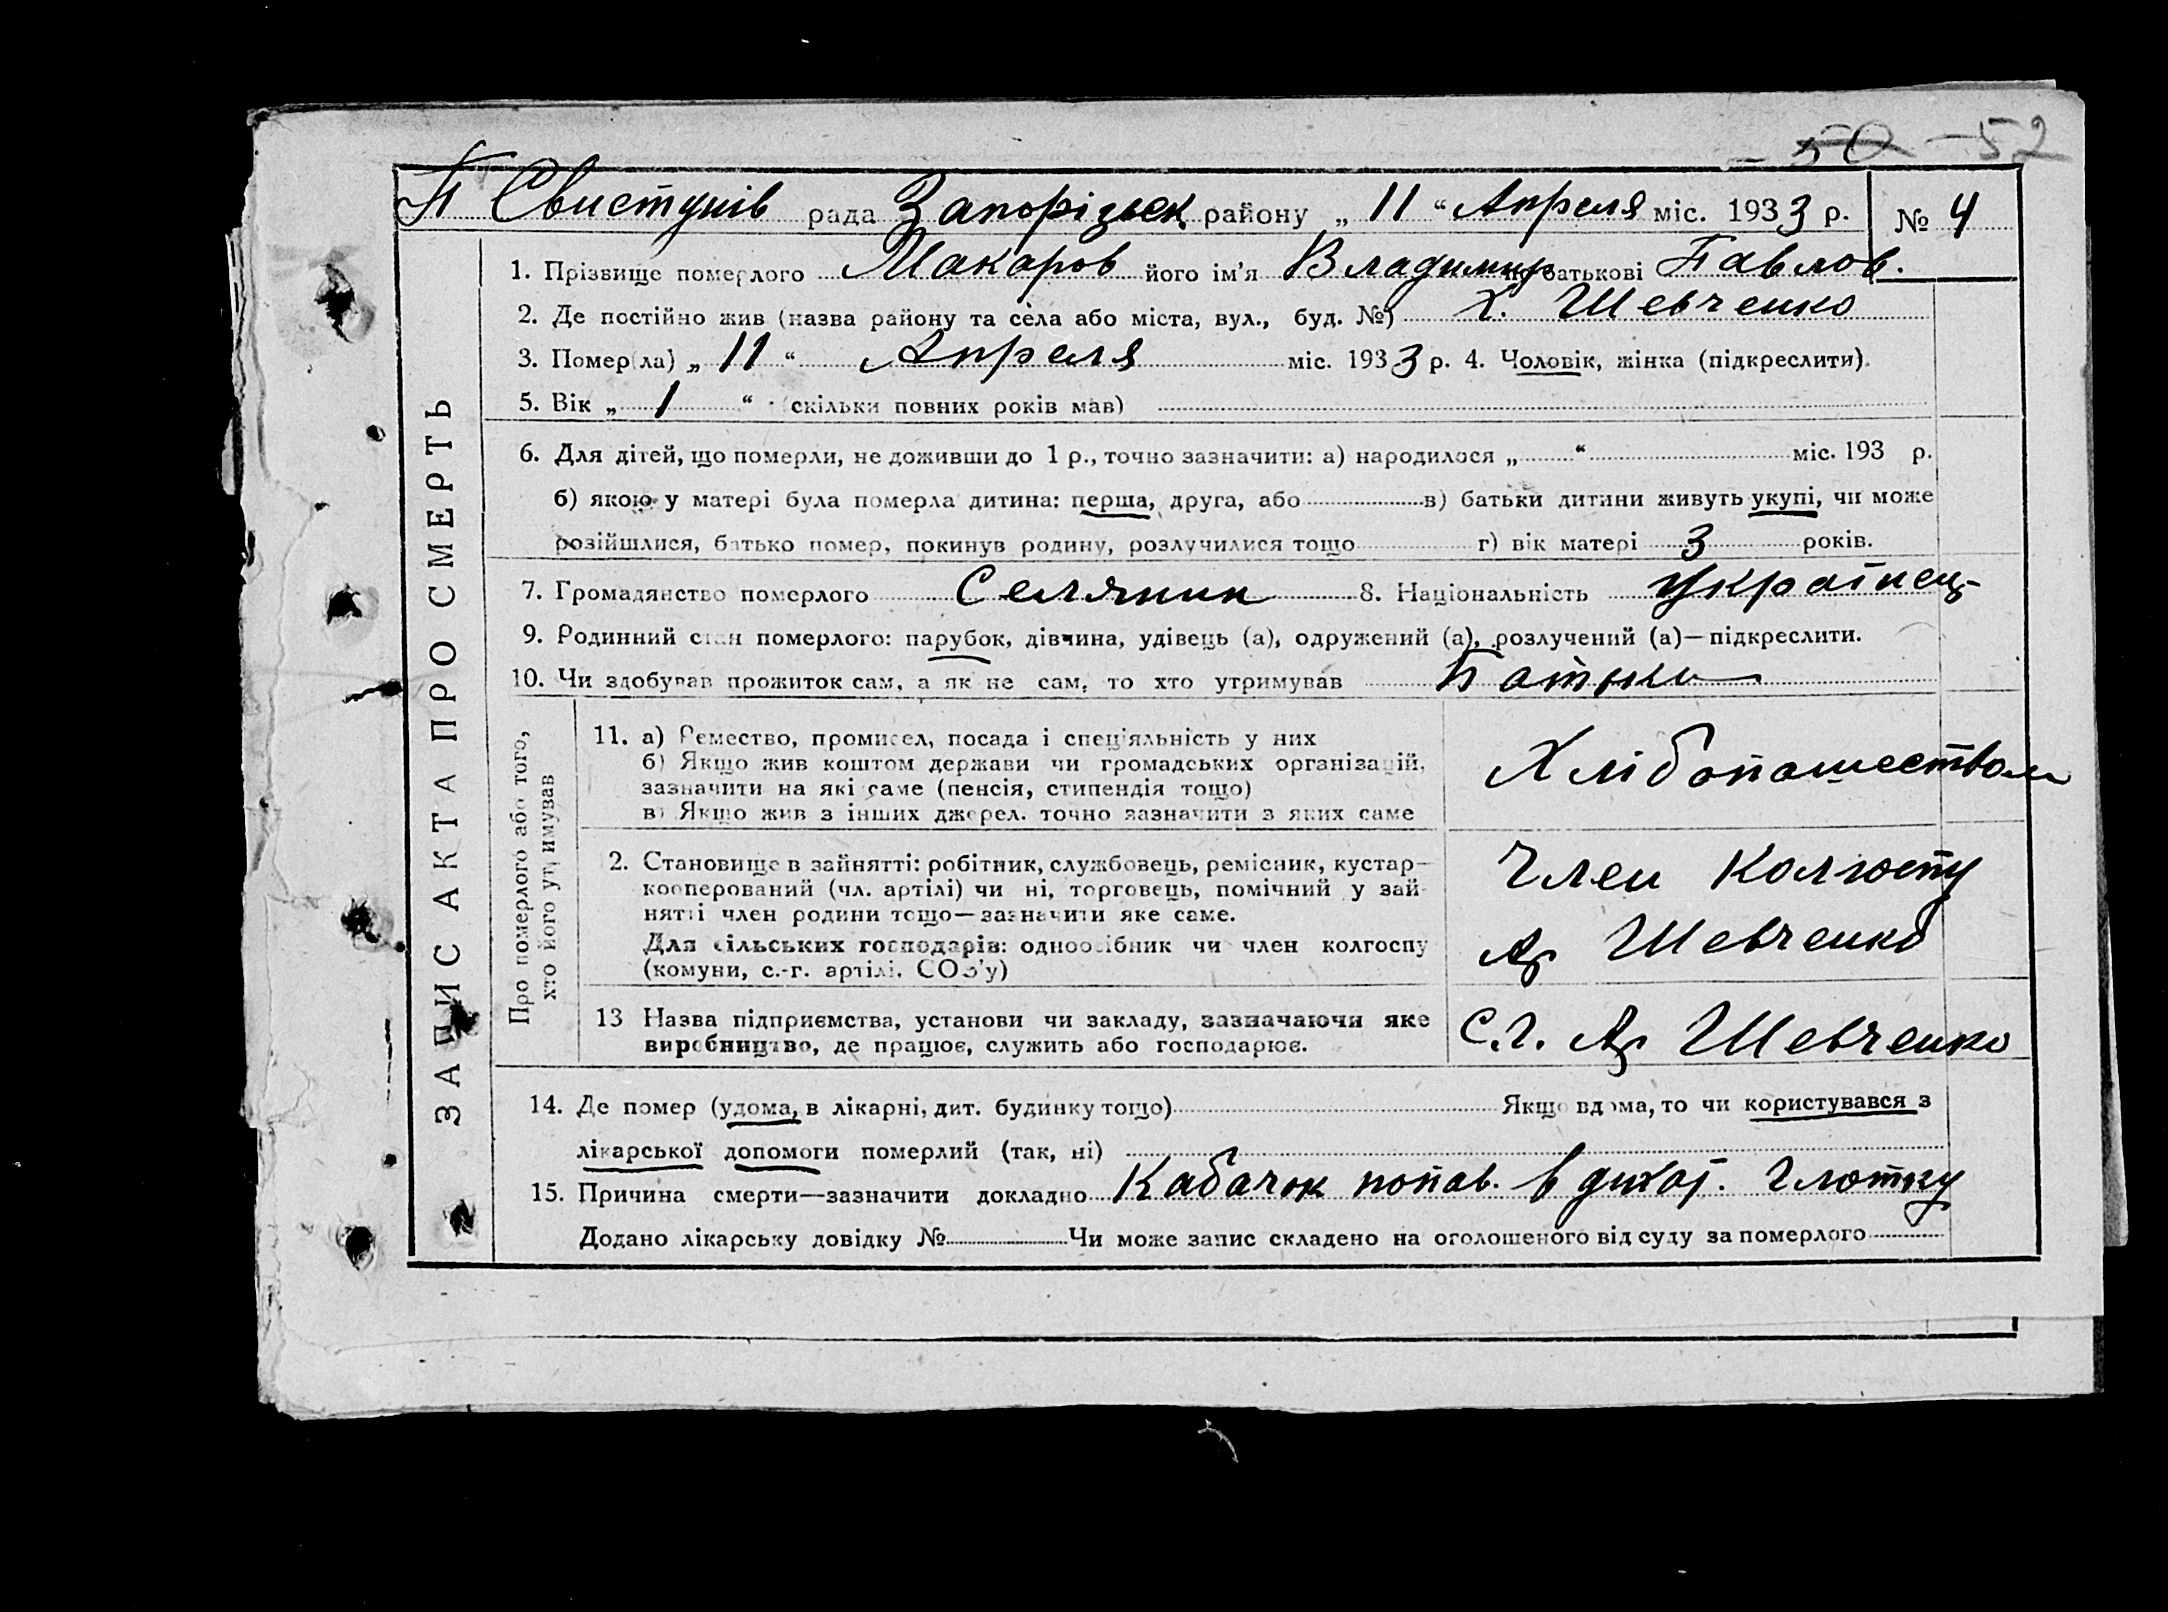 50 – 52
П Свистунів рада Запорізьск району „ 11 “ Апреля міс. 1933 р. № 4
1. Прізвище померлого Макаров його ім’я Владимир по батькові Павлов.
2. Де постійно жив (назва району та села або міста, вул., буд. №) Х. Шевченко
3. Помер(ла) „ 11 “ Апреля міс. 1933 р. 4. Чоловік, жінка (підкреслити).
5. Вік „ 1 “ (скільки повних років мав)
6. Для дітей, що померли, не доживши до 1 р., точно зазначити: а) народилося „ “ міс. 193 р.
б) якою у матері була померла дитина: перша, друга, або в) батьки дитини живуть укупі, чи може
розійшлися, батько помер, покинув родину, розлучилися тощо г) вік матері 3 років.
7. Громадянство померлого Селянин 8. Національність Українец
9. Родинний стан померлого: парубок, дівчина, удівець (а), одружений (а), розлучений (а)—підкреслити.
10. Чи здобував прожиток сам, а як не сам, то хто утримував Батьки
ЗАПИС АКТА ПРО СМЕРТЬ
Про померлого або того,
хто його утримував
11. а) Ремество, промисел, посада і спец’яльність у них
б) Якщо жив коштом держави чи громадських організацій,
зазначити на які саме (пенсія, стипендія тощо)
в) Якщо жив з інших джерел. точно зазначити з яких саме
Хлібопашеством
2. Становище в зайнятті: робітник, службовець, ремісник, кустар—
кооперований (чл. артілі) чи ні, торговець, помічний у зай-
нятті член родини тощо—зазначити яке саме.
Для сільських господарів: одноосібник чи член колгоспу
(комуни, с.-г. артілі, СОЗ’у)
Член Колгоспу
Ар Шевченко
13 Назва підприємства, установи чи закладу, зазначаючи яке
виробництво, де працює, служить або господарює.
С.г. Ар Шевченко
14. Де помер (удома, в лікарні, дит. будинку тощо) Якщо вдома, то чи користувався з
лікарської допомоги померлий (так, ні)
15. Причина смерти—зазначити докладно Кабачок попав. в дихат. глотку
Додано лікарську довідку № Чи може запис складено на оголошеного від суду за померлого